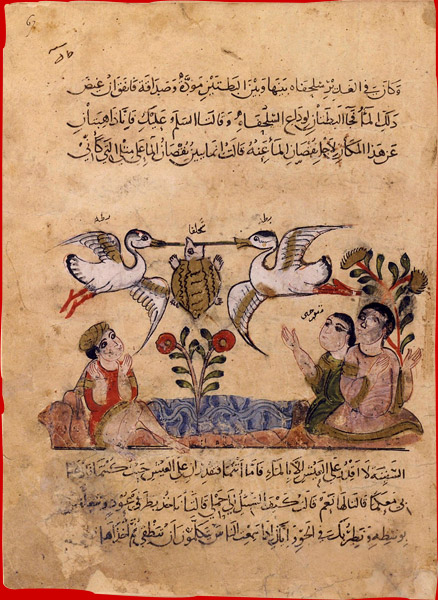 وكان في الغدير سلحفاه بينها وبين البطتين مودة وصداقة فاتفق ان غيض
ذلك الما فجا البطتان لوداع السلحفاه وقالتا السلام عليك فاننا ذاهبتان
عن هذا المكان لاجل نقصان الما عنه قالت انما يبين نقصان الما على مثلي التي كاني
بطه
بطه
السفينة لا اقدر على العيش الا بالماء فاما انتما فتقدران على العيش حيث كنتما فاذهبا
بي معكما قالتا لها نعم قالت كيف السبيل الى حملي قالتا ناخذ بطرفي عود وتتعلقين
بوسطه ونطير بك في الجو واياك اذا سمعت الناس يتكلمون ان تنطقي ثم اخذاها